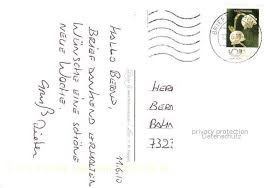 HALLO BERND,
BRIEF DANKEND ERHALTEN
WÜNSCHE EINE SCHÖNE
NEUE WOCHE.
Gruß Dieter
11.6.10
HER
BER
BAH
7323
privacy protection
Datenschutz